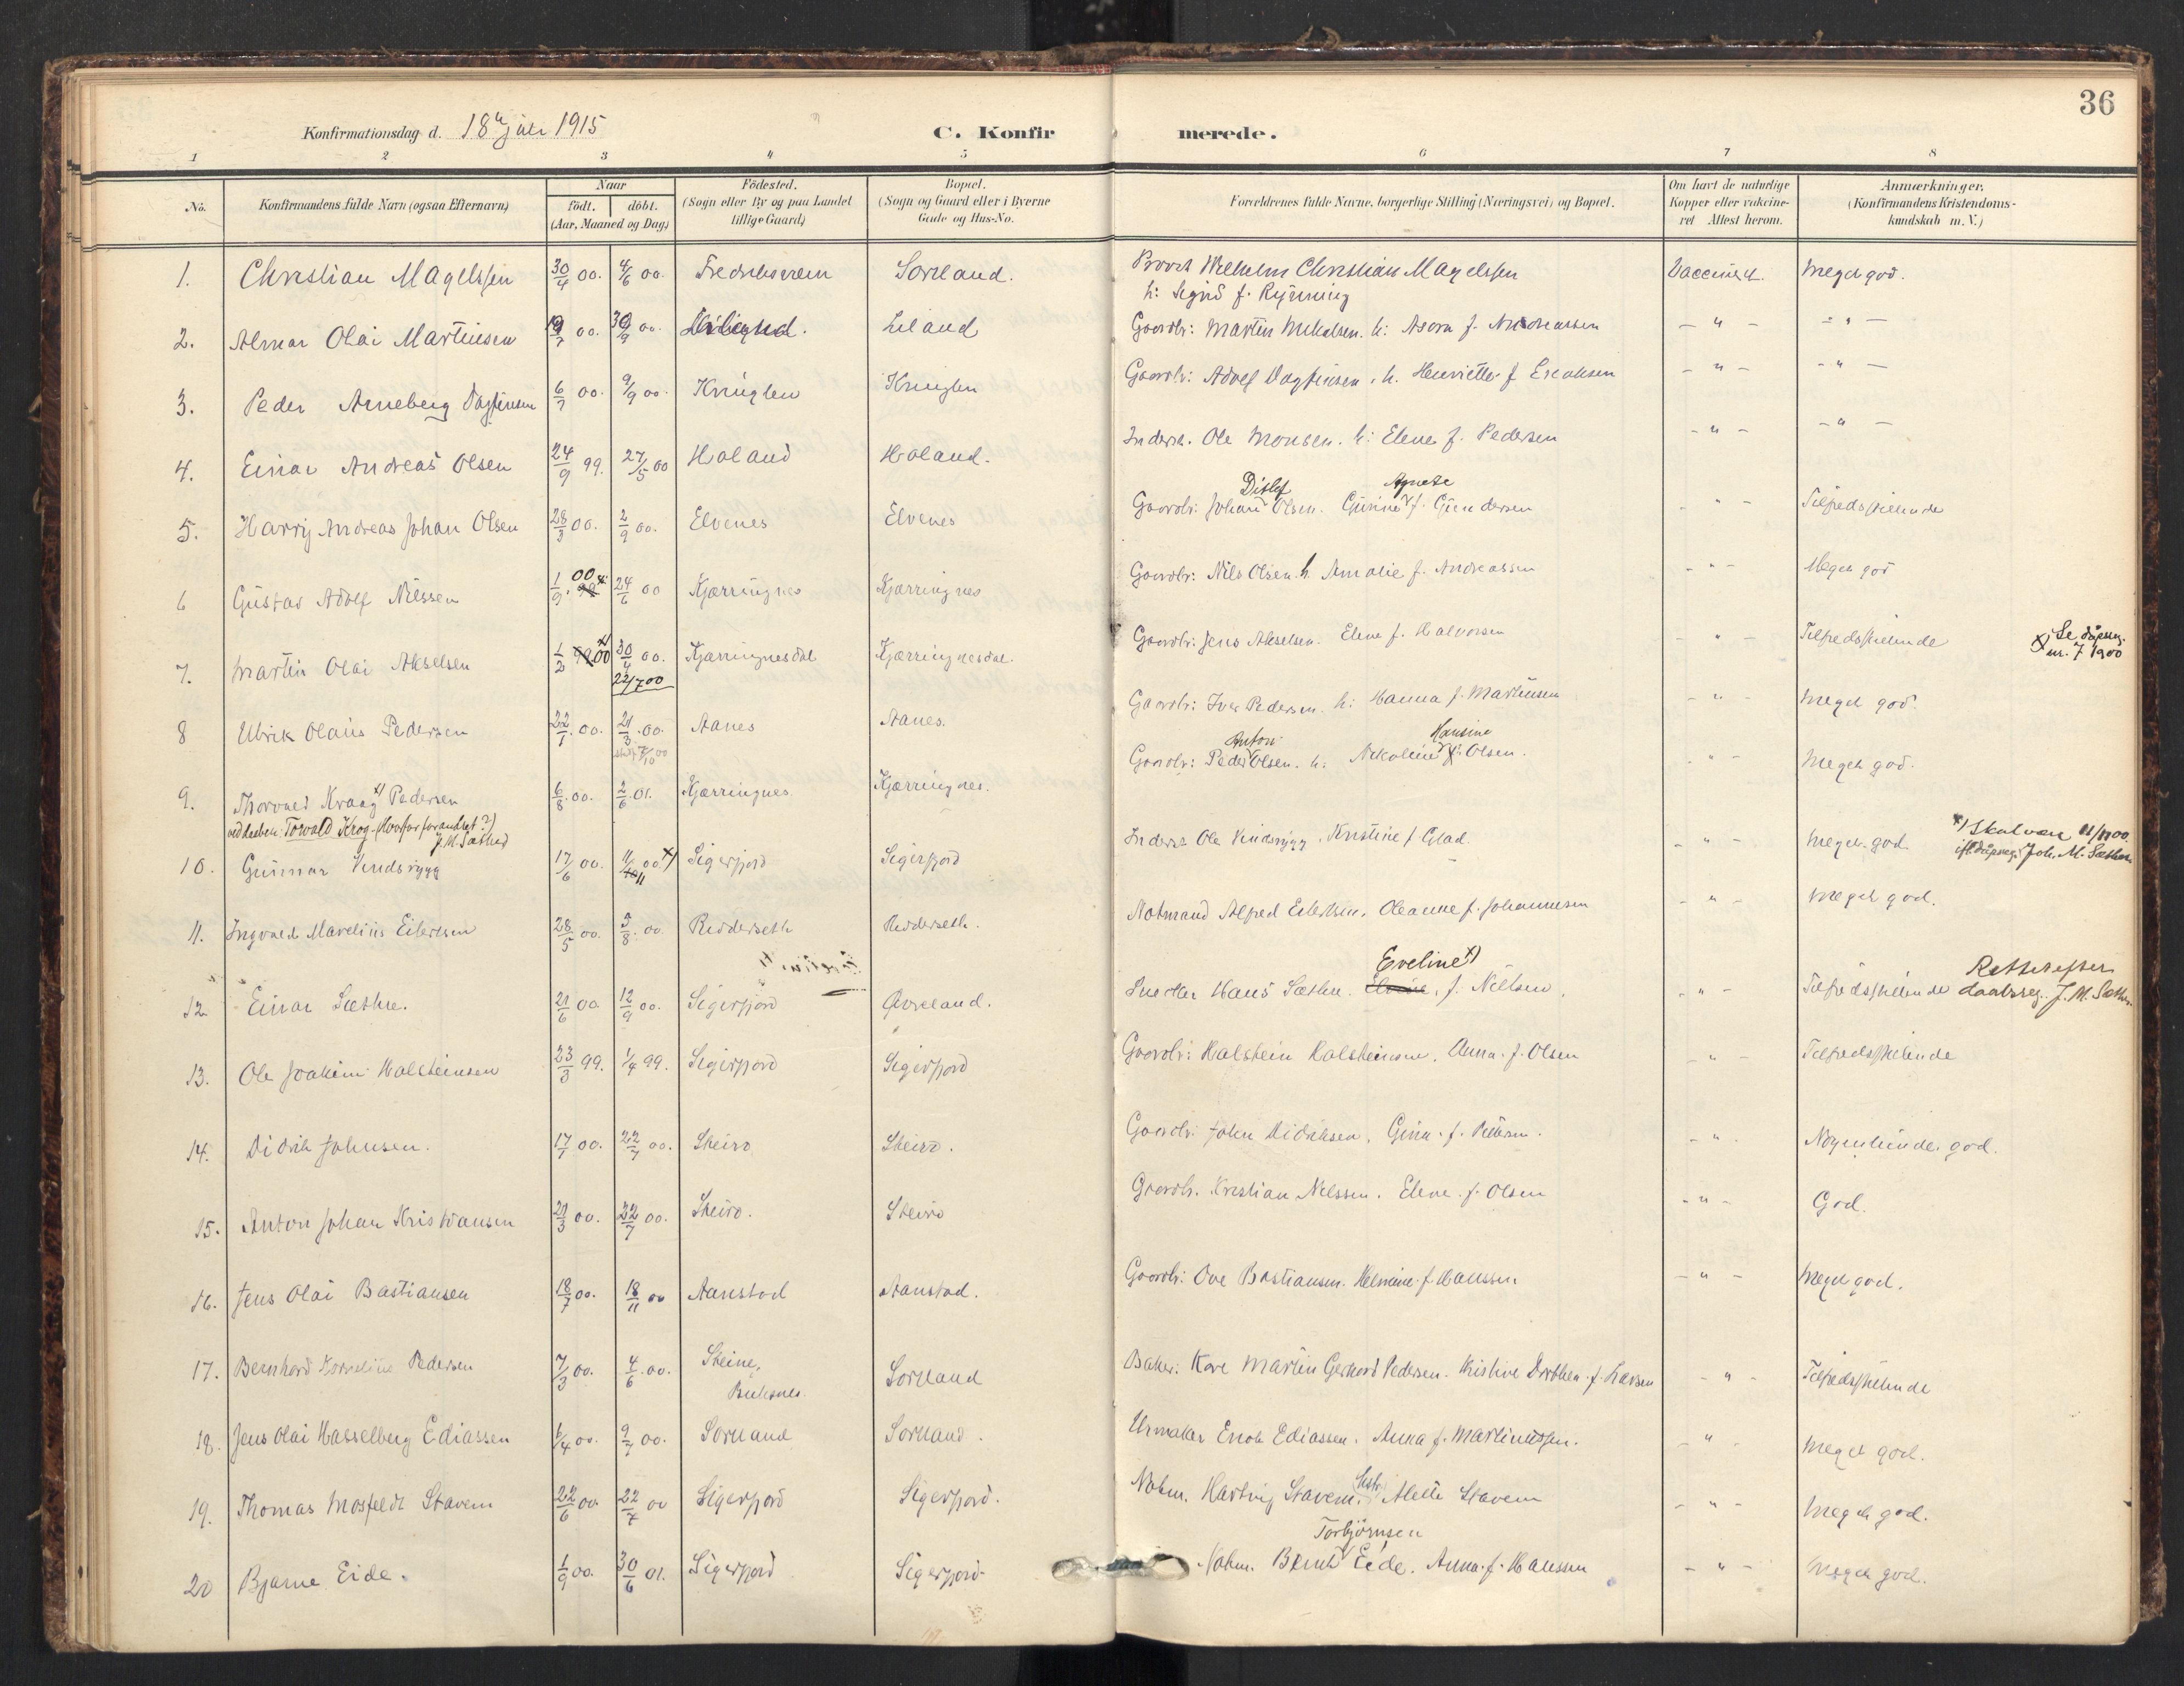 36
Konfirmationsdag d. 18de juli 1915
C. Konfirmerede.
1 2 3 4 5 6 7 8
No. Konfirmandens fulde Navn (ogsaa Efternavn) Naar födt. döbt. (Aar, Maaned og Dag) Födested. (Sogn eller By og paa Landet tillige Gaard) Bopæl. (Sogn og Gaard eller i Byerne Gade og Hus-No. Forældrenes fulde Navne, borgerlige Stilling (Næringsvei) og Bopæl. Om havt de naturlige Kopper eller vakcineret Attest herom. Anmærkninger. (Konfirmandens Kristendomskundskab m. V.)
1. Christian Magelssen 30/4 00. 4/6 00. Fredriksværn Sortland. Provst Wilhelm Christian Magelssen Vaccineret. Meget god.
h: Sigrid f. Rynning
2. Almar Olai Martinsen 00. 00. Liland Gaardbr: Martin Mikalsen. h: Asora f. Andreassen - " - - " -
3. Peder Arneberg Dagfinsen 6/7 00. 9/9 00. Kringlen Kringlen Gaardbr: Adolf Dagfinsen. h. Henriette f. Ereaksen - " - - " -
4. Einar Andreas Olsen 24/9 99. 27/5 00 Holand Holand. Inderst. Ole Monsen. h: Elene f. Pedersen - " - - " -
Ditlef Agnete
5. Harry Andreas Johan Olsen 28/3 00. 2/9 00. Elvenes Elvenes Gaardbr: Johan Olsen. Gunine f. Gundersen - " - Tilfredsstillende
6 Gustav Adolf Nilssen 1/9. 99 00 24/6 00 Kjærringnes Kjærringnes Gaardbr: Nils Olsen. h. Amalie f. Andreassen - " - Meget god
7. Martin Olai Akselsen 1/2 99 00 x) 30/4 00. Kjærringnesdal Kjærringnesdal. Gaardbr: Jens Akselsen. Elene f. Halvorsen - " - Tilfredsstillende x) Se dåpsreg. nr. 7 1900
22/7 00
8 Ulrik Olaus Pedersen 22/1. 00. 21/3. 00. Aanes Aanes. Gaardbr: Iver Pedersen. h: Hanna f. Martinsen - " - Meget god.
Anton Hansine
9. Thorvald Kraag x) Pedersen 6/8. 00. 2/6. 01. Kjærringnes. Kjærringnes. Gaardbr: Peder Olsen. h: Nikoline f. Olsen. - " - Meget god.
ved daaben: Torvald Krog. (Hvorfor forandret?) J. M. Sæther
10. Gunnar Vindsrygg 17/6 00. 11/11 00. x) Sigerfjord Sigerfjord Inderst Ole Vindsrygg. Kristine f. Glad. - " - Meget god. x) Skal være 11/11 00
ifl. dåpsreg. Joh. M. Sæther
11. Ingvald Marelius Eilertsen 28/5 00. 5/8. 00. Ridderseth Ridderseth. Notmand Alfred Eilertsen. Oleanne f. Johannesen - " - Meget god.
Eveline x) Rettet efter
12. Einar Sæther. 21/6 00. 12/9 00. Sigerfjord Øvreland. Hans Sæther. f. Nilsen. - " - Tilfredsstillende daabsreg. J. M. Sæther.
13. Ole Joakim Halsteinsen 23/3 99. 1/4 99. Sigerfjord Sigerfjord Gaardbr: Halstein Halsteinsen. Anna f. Olsen - " - Tilfredsstillende
14. Didrik Johnsen. 17/1 00. 22/7 00. Steiro Steiro. Gaardbr: John Didriksen. Gina f. - " - Nogenlunde god.
15. Anton Johan Kristiansen 21/3 00. 22/7 00. Steiro. Steiro Gaardbr. Kristian Nilssen. Elene f. Olsen - " - God.
16. Jens Olai Bastiansen 18/7 00. 18/11 00 Aanstad Aanstad. Gaardbr: Ove Bastiansen. Helmine f. Hanssen - " - Meget god.
17. Bernhard Kornelius Pedersen 7/3 00. 4/6. 00. Steine, Buksnes. Sortland Baker: Kare Martin Gerhard Pedersen. Kristine Dorthea f. Larsen - " - Tilfredsstillende
18. Jens Olai Hasselberg Ediassen 6/4 00. 9/7 00. Sortland Sortland. Urmaker Enok Ediassen. Anna f. Martinussen. - " - Meget god.
19. Thomas Mosfeldt Stavem 22/6 00. 22/7 00 Sigerfjord Sigerfjord. Nobm. Hartvig Stavem. Hstr. Alette Stavem - " - Meget god.
Torbjørnsen
20 Bjarne Eide. 1/9 00. 30/6 01. Sigerfjord Sigerfjord. Nobm. Bernt Eide. Anna f. Hanssen - " - Meget god.